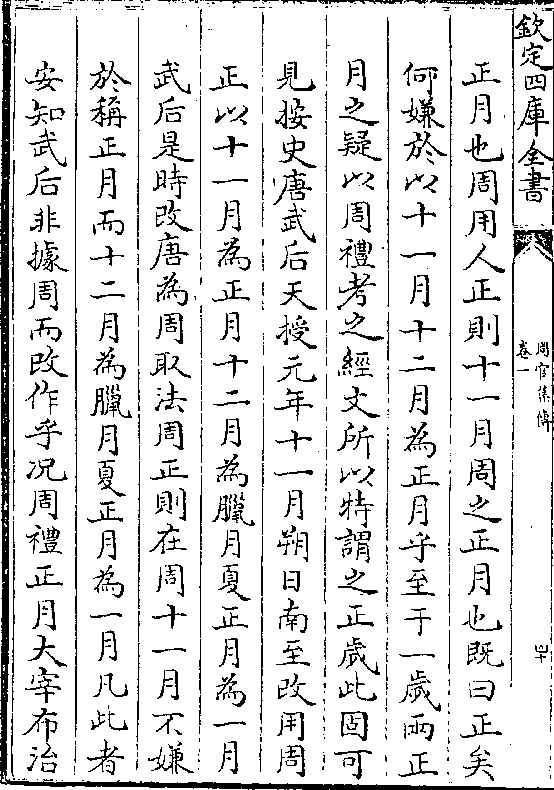 欽定四庫全書
周官集傳
卷一
四十
正月也周用人正則十一月周之正月也既曰正矣
何嫌於以十一月十二月為正月乎至于一歲兩正
月之疑以周禮考之經文所以特謂之正歲此固可
見按史唐武后天授元年十一月朔日南至改用周
正以十一月為正月十二月為臘月夏正月為一月
武后是時改唐為周取法周正則在周十一月不嫌
於稱正月而十二月為臘月夏正月為一月凡此者
安知武后非據周而改作乎况周禮正月大宰布治